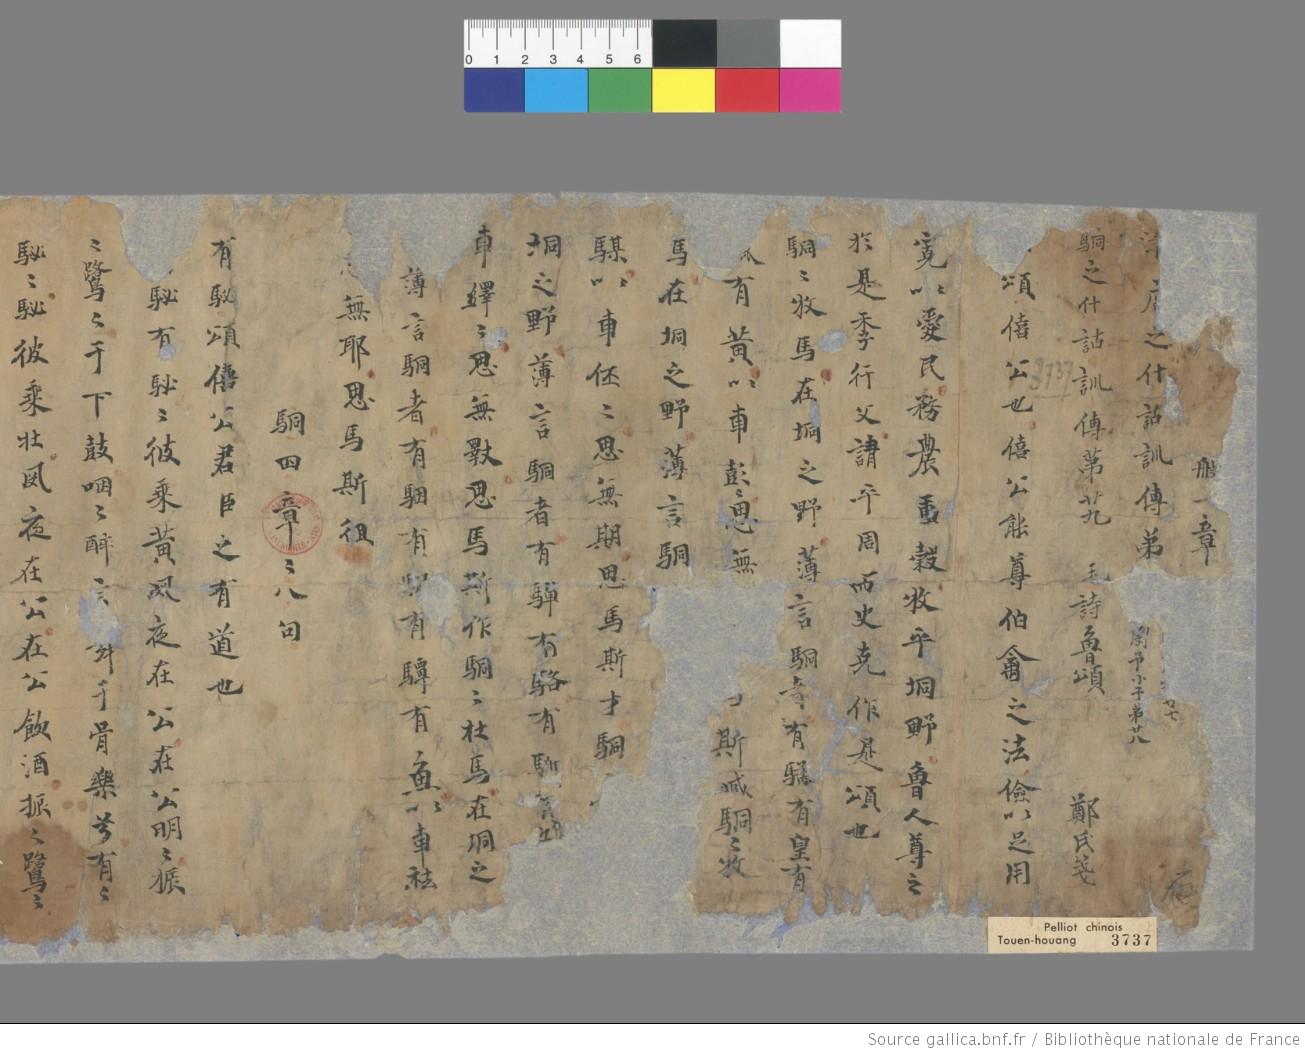 一章
清庿之什詁訓傳弟
閔予小子第廿八
駉之什詁訓傳苐廿九 毛詩魯頌 鄭氏箋
頌僖公也僖公能尊伯禽之法儉以足用
寬以愛民務農重穀牧乎坰野魯人尊之
於是季行父請乎周而史克作是頌也
駉〻牧馬在坰之野薄言駉者有驈有皇有
有黃以車彭〻思無
斯臧駉〻牧
馬在坰之野薄言駉
騏以車伾〻思無期思馬斯才駉
坰之野薄言駉者有驒有駱有
車繹〻思無斁思馬斯作駉〻牡馬在坰之
薄言駉者有駰有有驔有魚以車袪
無耶思馬斯徂
駉四章〻八句
有駜頌僖公君臣之有道也
駜有駜〻彼乘黃夙夜在公在公明〻振
〻鷺〻于下鼓咽〻醉言舞于胥樂兮有〻
駜〻駜彼乘牡夙夜在公在公飲酒振〻鷺〻
3737
Pelliot chinois
Touen-houang 3737
0 1 2 3 4 5 6
Source gallica.bnf.fr / Bibliothèque nationale de France